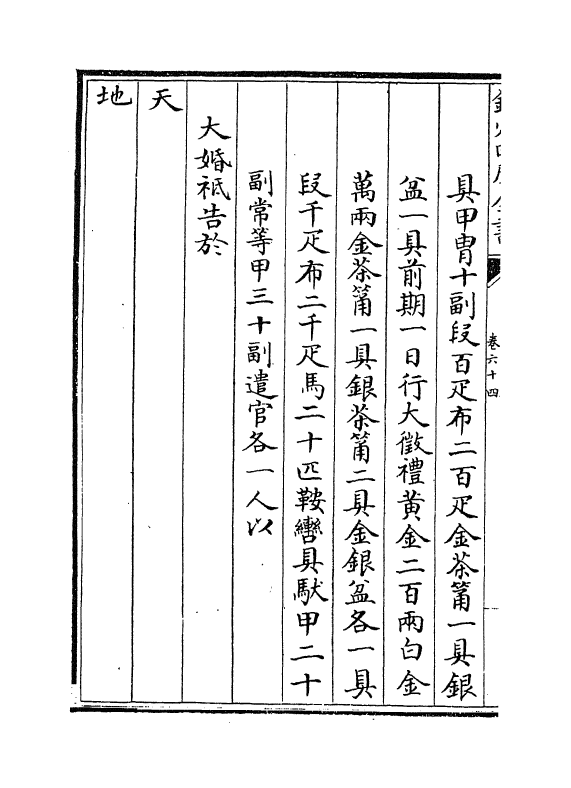 欽定四庫全書
卷六十四
具甲胄十副段百疋布二百疋金茶筩一具銀
盆一具前期一日行大徵禮黃金二百兩白金
萬兩金茶筩一具銀茶筩二具金銀盆各一具
段千疋布二千疋馬二十匹鞍轡具馱甲二十
副常等甲三十副遣官各一人以
大婚祗告於
天
地